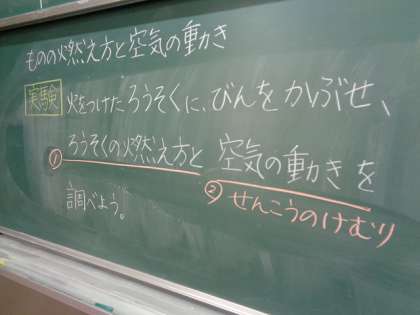 ものの燃え方と空気の動き
実験 火をつけたろうそくに、びんをかぶせ、
①ろうそくの燃え方と ②空気の動きを
せんこうのけむり
調べよう。